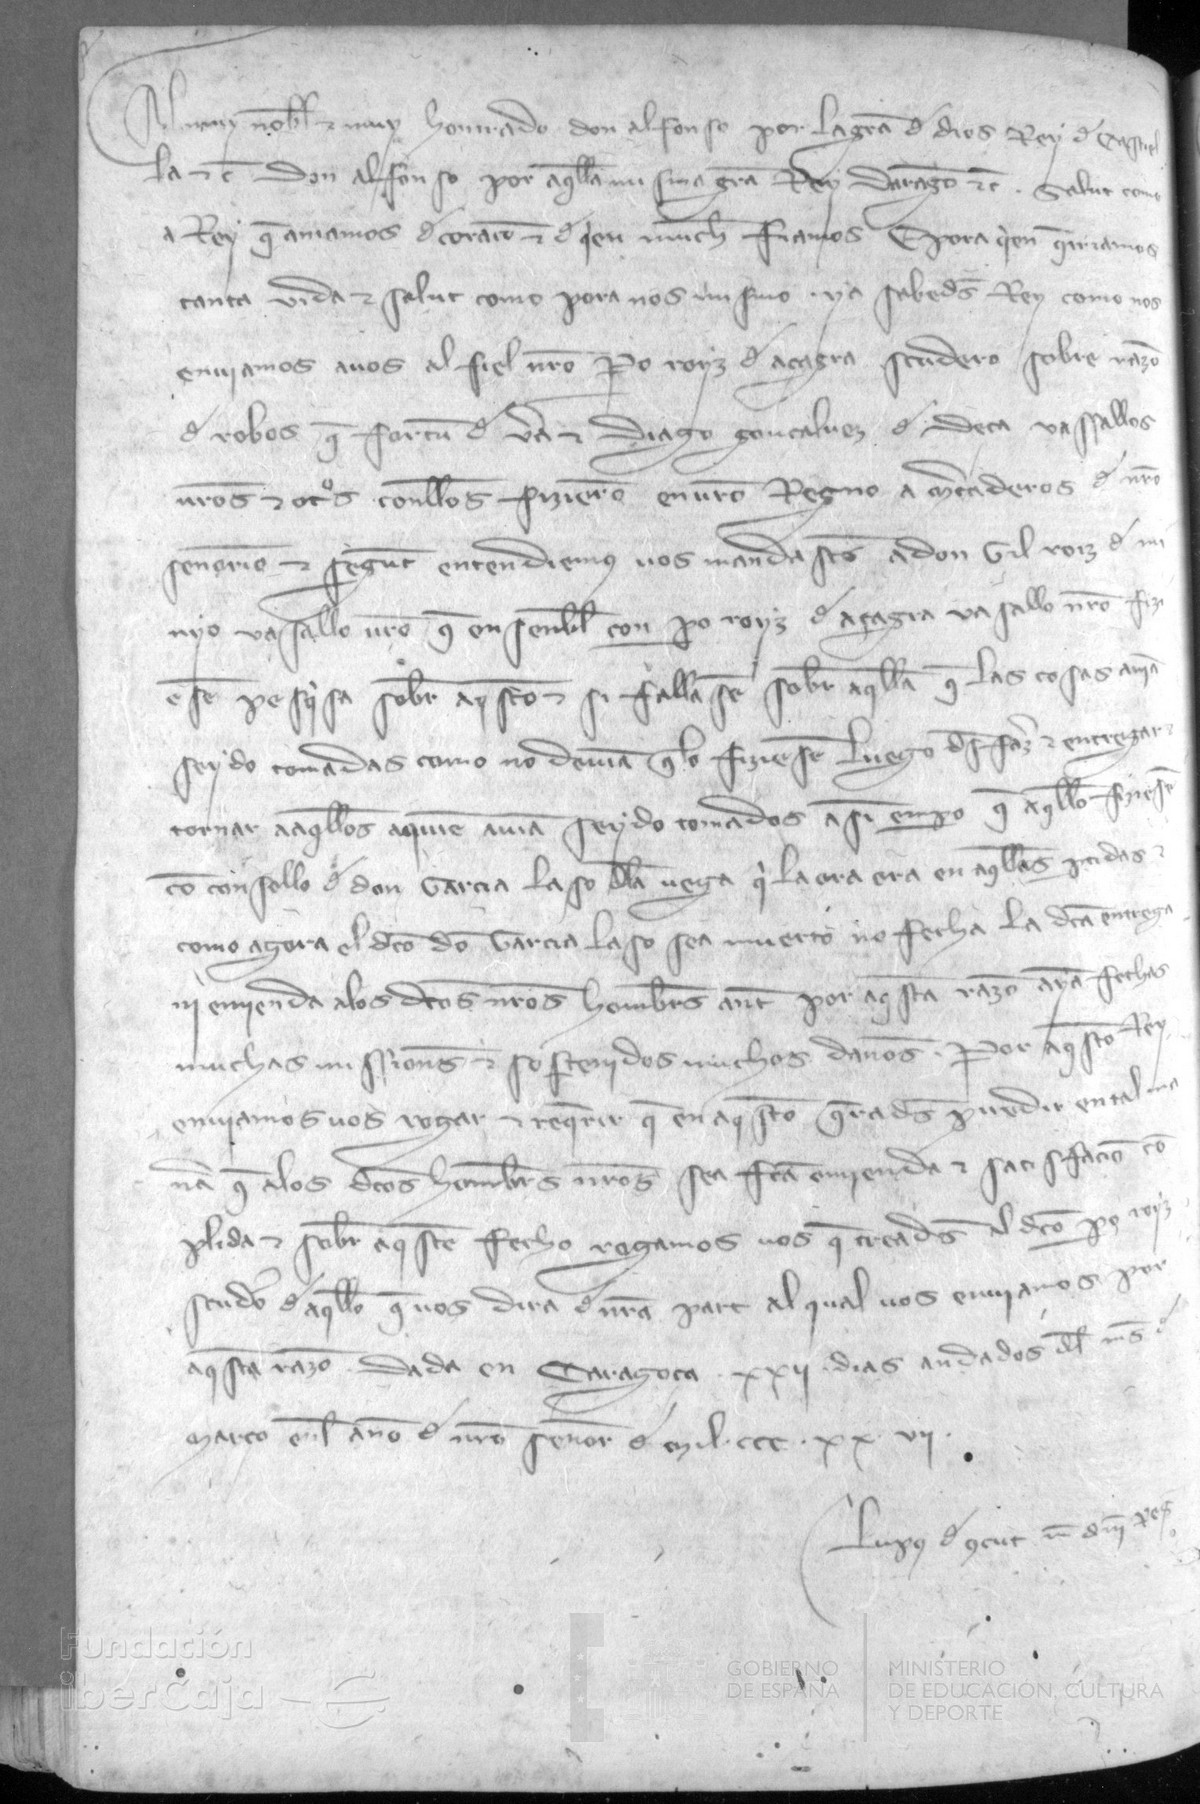 Al muy nobl & muy honrrado don alfonso por la gra d dios Rey d Castiel
la &c Don alfonso por aqlla misma gra Rey daragon &c. Salut como
a Rey q amamos d coraço & d qien much fiamos & pora qien qrriamos
tanta vida & salut como pora nos mismo. ya sabeds Rey como nos
enviamos a vos al fiel nro Po royz d açagra scudero sobre razo
d robos q fortu d & Diago gonçaluez d deça vassallos
vros & otos con ellos fiziero en vro Regno a mcaderos d nro
senorio & segut entendiemos vos mandastes a don Gil roiz d mi
nyo vasallo vro q ensenbl con po royz d açagra vasallo nro fizi
ese pesqisa sobr aqsto & si fallase sobr aqlla q las cosas avia
seydo tomadas como no devia q lo fiziese luego dsfaz & entregar &
tornar a aqllos a qui avia seydo tomados asi empo q aqllo fiziese
co consello d don Garcia laso dla vega q la ora era en aqllas ptidas &
como agora el dco do Garcia laso sea muerto no fecha la dca entrega
ni emienda a los dcos nros hombrs ant por aqsta razo aya fechas
muchas missions & sostenidos muchos danos. Por aqsto Rey
enviamos vos rogar & reqrir q en aqsto qrads pvedir en tal ma
na q a los dcos hombrs nros sea fca emienda & satisfacio co
plida & sobr aqste fecho rogamos vos q creads al dco po royz
scudo d aqllo q vos dira d nra part al qual vos enviamos por
aqsta razo. Dada en Caragoça. xxii. dias andados dl mes d
março enl ano d nro senor d mil. ccc. xx. vii.
Lupus d 9cut m dni Reg.
Fundación
iberCaja
GOBIERNO
DE ESPAÑA
MINISTERIO
DE EDUCACIÓN, CULTURA
Y DEPORTE